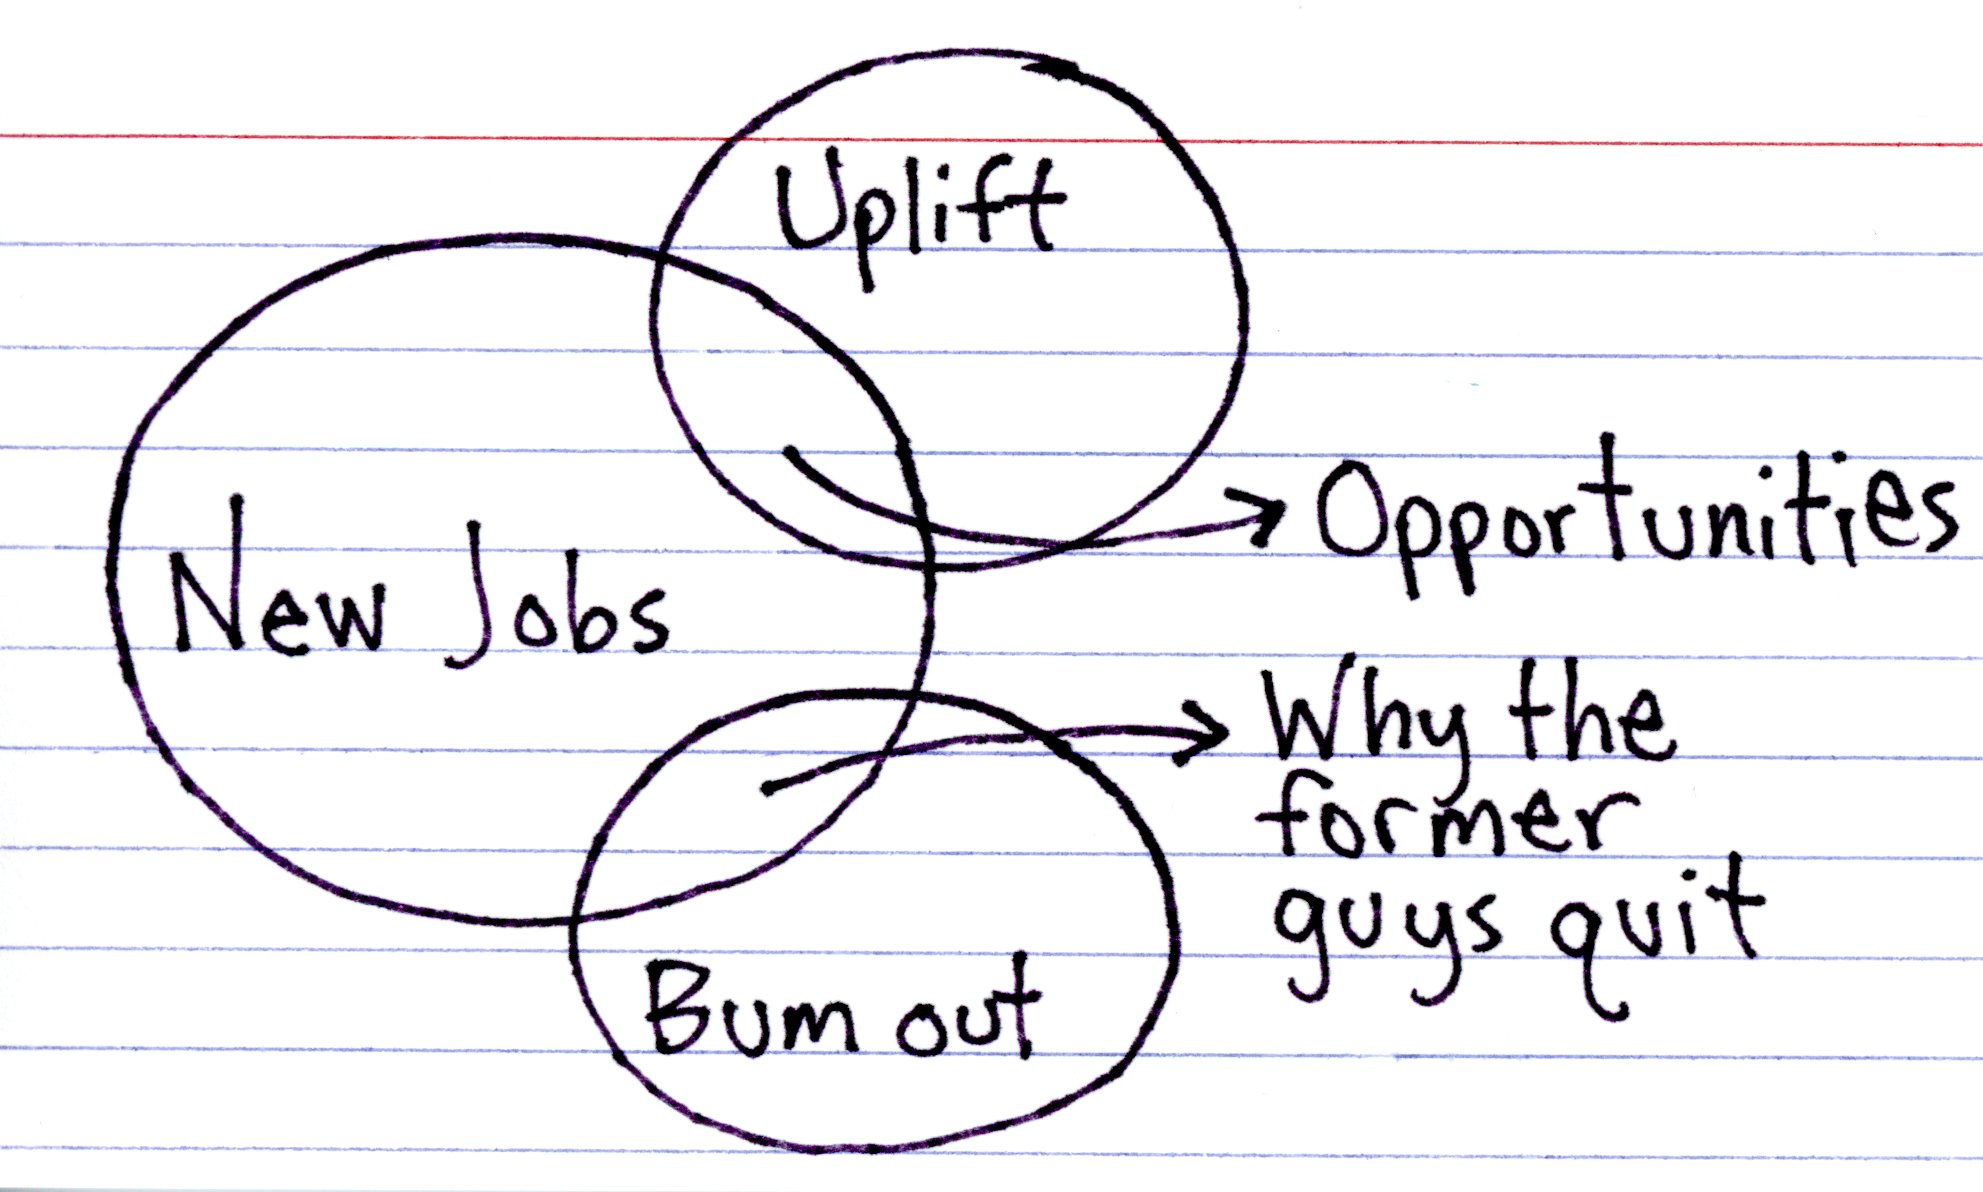 Uplift
Opportunities
New Jobs
Why the
former
guys quit
Bum out